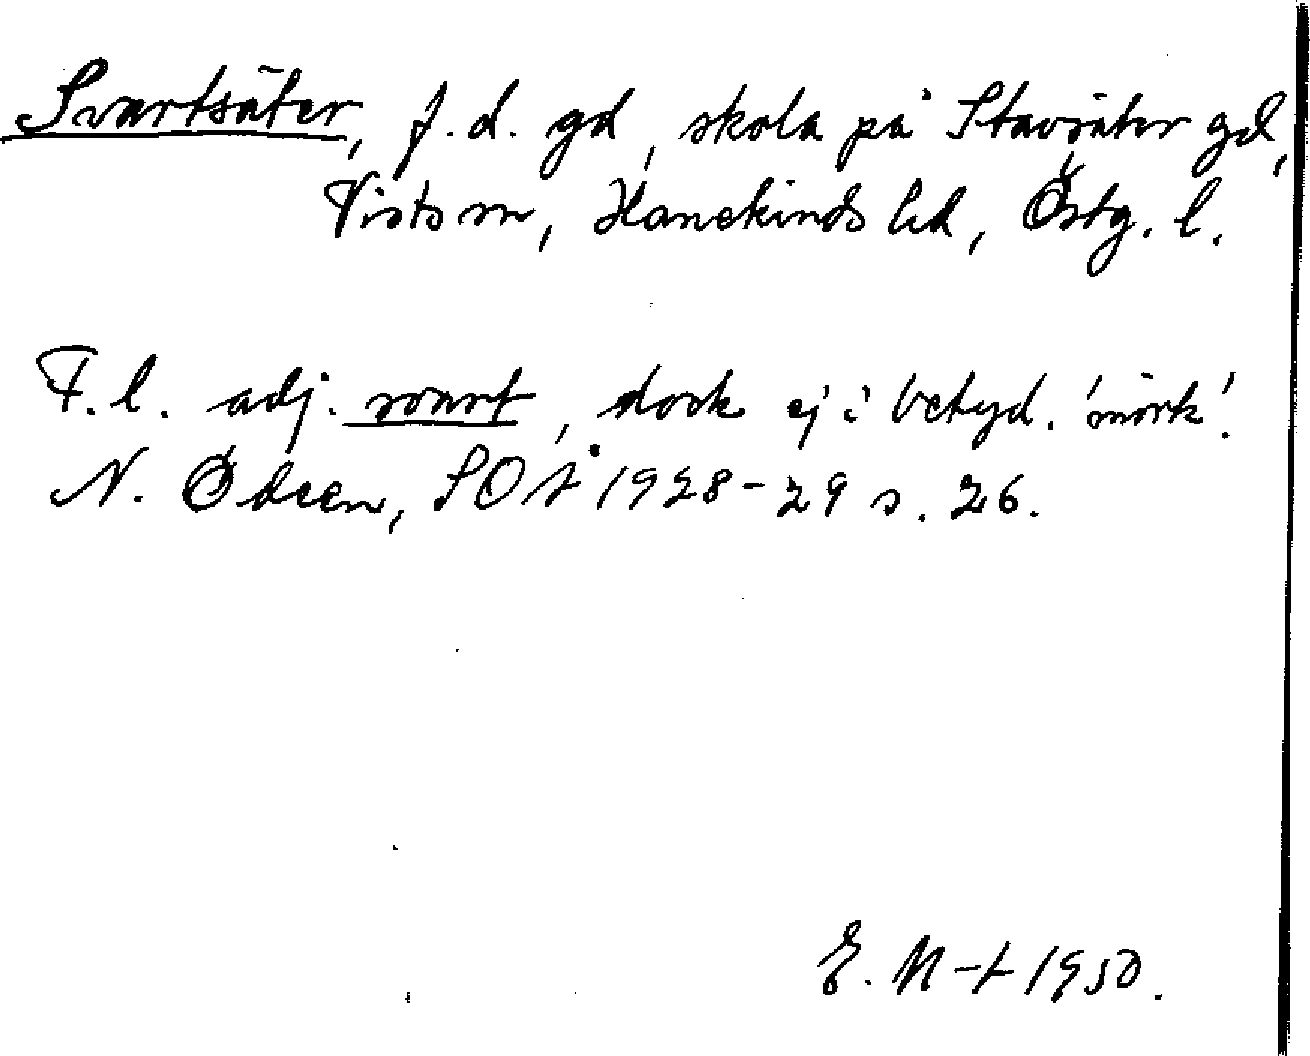 Svartsäter, f.d. gd, skola på Stavsäter gd,
Vists sn, Hanekinds hd, Östg. l.
F.l. adj. svart, dock ej i betyd. 'mörk'.
N. Ödeen, SOÅ 1928-29 s. 26.
E. M-t 1950.